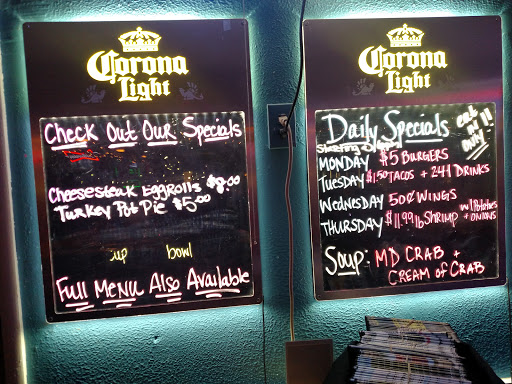 Corona
Light
Check Out Our Specials
Cheesesteak Eggrolls $8.00
Turkey Pot Pie $5.00
up bowl
Full Menu Also Available
Corona
Light
Daily Specials
eat in only!!
MONDAY $5 BURGERS
TUESDAY $1.50 TACOS + 241 DRINKS
WEDNESDAY 50¢ WINGS
THURSDAY $11.99 lb Shrimp w/Potatoes + ONIONS
SOUP: MD CRAB +
CREAM of CRAB